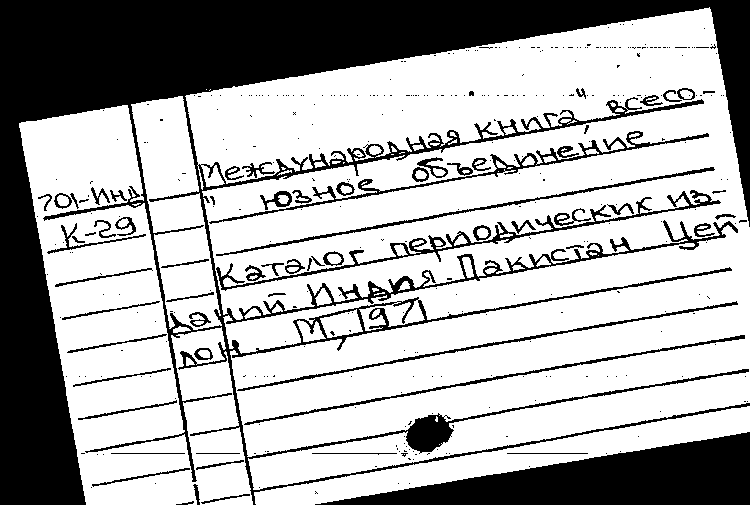 Международная книга", всесо-
701-Инд " юзное объединение.
К-29
Каталог периодических из-
даний. Индия. Пакистан. Цей-
лон. М., 1971.